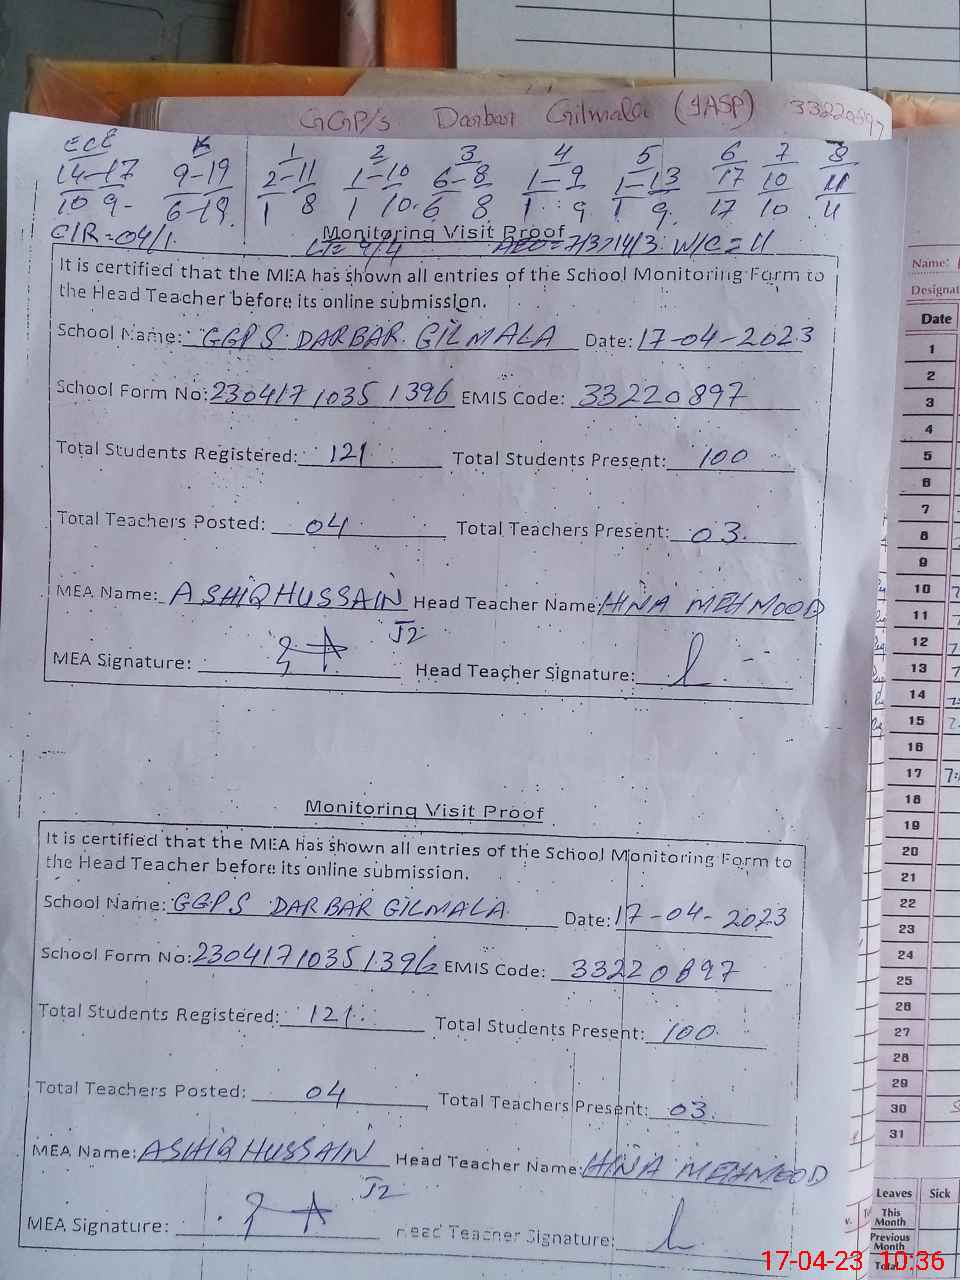 GGP/s Darbar Gilmala (JASP) 33220897
ECE K 1 2 3 4 5 6 7 8
14-17 9-19 2-11 1-10 6-8 1-9 1-13 17 10 11
10 9- 6-19 1 8 1 10 6 8 1 9 1 9 17 10 11
CIR=04/1.
Monitoring Visit Proof
4/4 AEO=7/3 W/C=11
It is certified that the MEA has shown all entries of the School Monitoring Form to
the Head Teacher before its online submission.
School Name: GGPS DARBAR GILMALA Date: 17-04-2023
School Form No: 2304171035 1396 EMIS Code: 33220897
Total Students Registered: 121 Total Students Present: 100
Total Teachers Posted: 04 Total Teachers Present: 03.
MEA Name: ASHIQ HUSSAIN Head Teacher Name: HINA MEHMOOD
J2
MEA Signature: Head Teacher Signature:
Monitoring Visit Proof
It is certified that the MEA has shown all entries of the School Monitoring Form to
the Head Teacher before its online submission.
School Name: GGPS DARBAR GILMALA Date: 17-04-2023
School Form No: 23041710351396 EMIS Code: 33220897
Total Students Registered: 121 Total Students Present: 100
Total Teachers Posted: 04 Total Teachers Present: 03.
MEA Name: ASHIQ HUSSAIN Head Teacher Name: HINA MEHMOOD
J2
MEA Signature: Head Teacher Signature:
Name:
Designat
Date
1
2
3
4
5
6
7
8
9
10
11
12
13
14
15
16
17 7:
18
19
20
21
22
23
24
25
26
27
28
29
30
31
Leaves Sick
This Month
Previous Month
Total
17-04-23 10:36